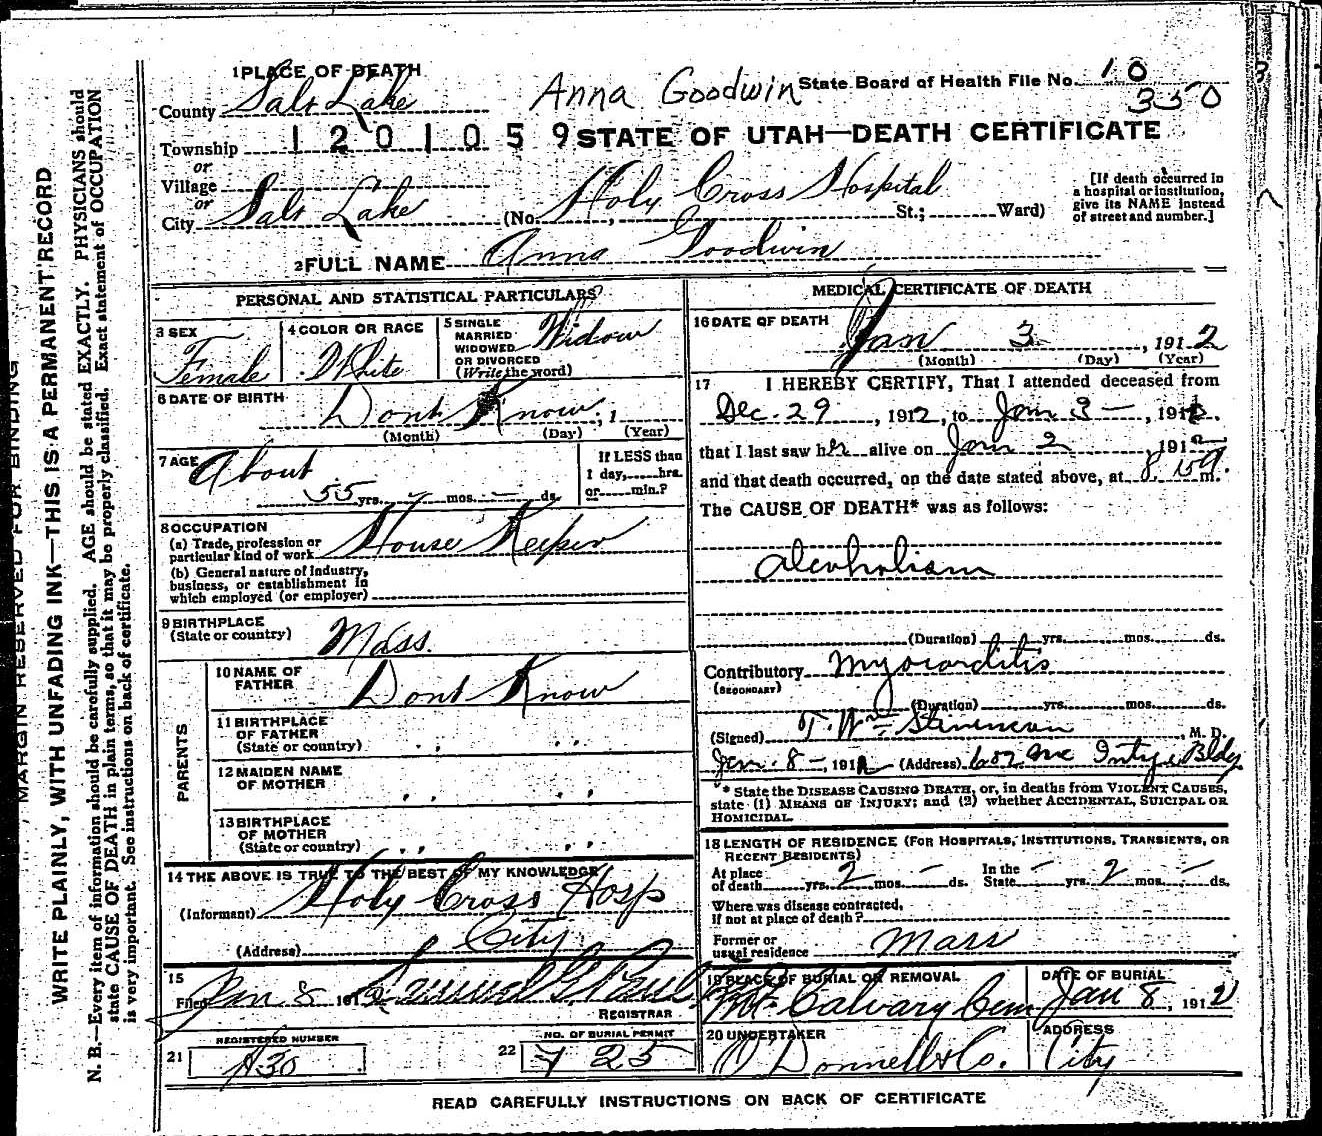 1 PLACE OF DEATH
County Salt Lake
Anna Goodwin
State Board of Health File No. 10
350
Township 1201059 STATE OF UTAH—DEATH CERTIFICATE
or
Village
or
City Salt Lake (No. Holy Cross Hospital St.; Ward)
[If death occurred in
a hospital or institution,
give its NAME instead
of street and number.]
2 FULL NAME Anna Goodwin
PERSONAL AND STATISTICAL PARTICULARS
3 SEX
Female
4 COLOR OR RACE
White
5 SINGLE
MARRIED
WIDOWED
OR DIVORCED
(Write the word)
Widow
6 DATE OF BIRTH
Dont Know, 1
(Month) (Day) (Year)
7 AGE About
55 yrs. mos. ds.
If LESS than
1 day, hrs.
or min.?
8 OCCUPATION
(a) Trade, profession or
particular kind of work House Keeper
(b) General nature of Industry,
business, or establishment in
which employed (or employer)
9 BIRTHPLACE
(State or country) Mass.
PARENTS
10 NAME OF
FATHER Dont Know
11 BIRTHPLACE
OF FATHER
(State or country) " "
12 MAIDEN NAME
OF MOTHER " "
13 BIRTHPLACE
OF MOTHER
(State or country) " "
14 THE ABOVE IS TRUE TO THE BEST OF MY KNOWLEDGE
(Informant) Holy Cross Hosp
(Address) City
15
Filed Jan 8 191
REGISTRAR
REGISTERED NUMBER
21
NO. OF BURIAL PERMIT
22
MEDICAL CERTIFICATE OF DEATH
16 DATE OF DEATH
Jan 3, 1912
(Month) (Day) (Year)
17 I HEREBY CERTIFY, That I attended deceased from
Dec. 29, 1912, to Jan 3 —, 191
that I last saw her alive on Jan 2, 191
and that death occurred, on the date stated above, at m.
The CAUSE OF DEATH* was as follows:
alcoholism
(Duration) yrs. mos. ds.
Contributory Myocarditis
(SECONDARY)
(Duration) yrs. mos. ds.
(Signed) T. Wm Stevenson, M. D.
Jan. 8 —, 1912 (Address) 602 Mc Intyre Bldg
* State the DISEASE CAUSING DEATH, or, in deaths from VIOLENT CAUSES,
state (1) MEANS OF INJURY; and (2) whether ACCIDENTAL, SUICIDAL OR
HOMICIDAL.
18 LENGTH OF RESIDENCE (FOR HOSPITALS, INSTITUTIONS, TRANSIENTS, OR
RECENT RESIDENTS)
At place
of death — yrs. 2 mos. — ds.
In the
State — yrs. 2 mos. — ds.
Where was disease contracted,
if not at place of death?
Former or
usual residence Mass
19 PLACE OF BURIAL OR REMOVAL
Mt. Calvary Cem
DATE OF BURIAL
Jan 8, 1912
20 UNDERTAKER
O Donnell & Co.
ADDRESS
City
READ CAREFULLY INSTRUCTIONS ON BACK OF CERTIFICATE
MARGIN RESERVED FOR BINDING
WRITE PLAINLY, WITH UNFADING INK—THIS IS A PERMANENT RECORD
N. B.—Every item of information should be carefully supplied. AGE should be stated EXACTLY. PHYSICIANS should
state CAUSE OF DEATH in plain terms, so that it may be properly classified. Exact statement of OCCUPATION
is very important. See instructions on back of certificate.